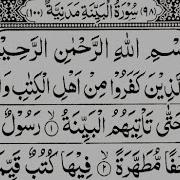 (٩٨) سُورَةُ الْبَيِّنَةِ مَدَنِيَّةٌ (١٠٠)
سْمِ اللهِ الرَّحْمٰنِ الرَّحِيْمِ
لَّذِيْنَ كَفَرُوْا مِنْ اَهْلِ الْكِتٰبِ وَا
حَتّٰى تَاْتِيَهُمُ الْبَيِّنَةُ ۙ ١ رَسُوْلٌ
فًا مُّطَهَّرَةً ۙ ٢ فِيْهَا كُتُبٌ قَيِّمَ